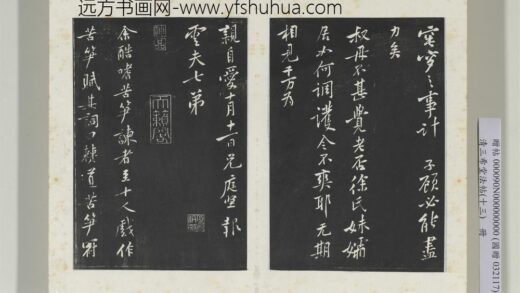 远方书画网-www.yfshuhua.com
窀穸之事计 子顾必能尽
力矣
叔母不甚觉老否徐氏妹孀
居如何调护令不爽耶无期
相见千万为
亲自爱十月十一日兄庭坚报
云夫七弟
余酷嗜苦笋谏者至十人戏作
苦笋赋其词曰僰道苦笋冠
贈帖 000090N000000000 (國贈 032117)
清三希堂法帖(十三) 冊